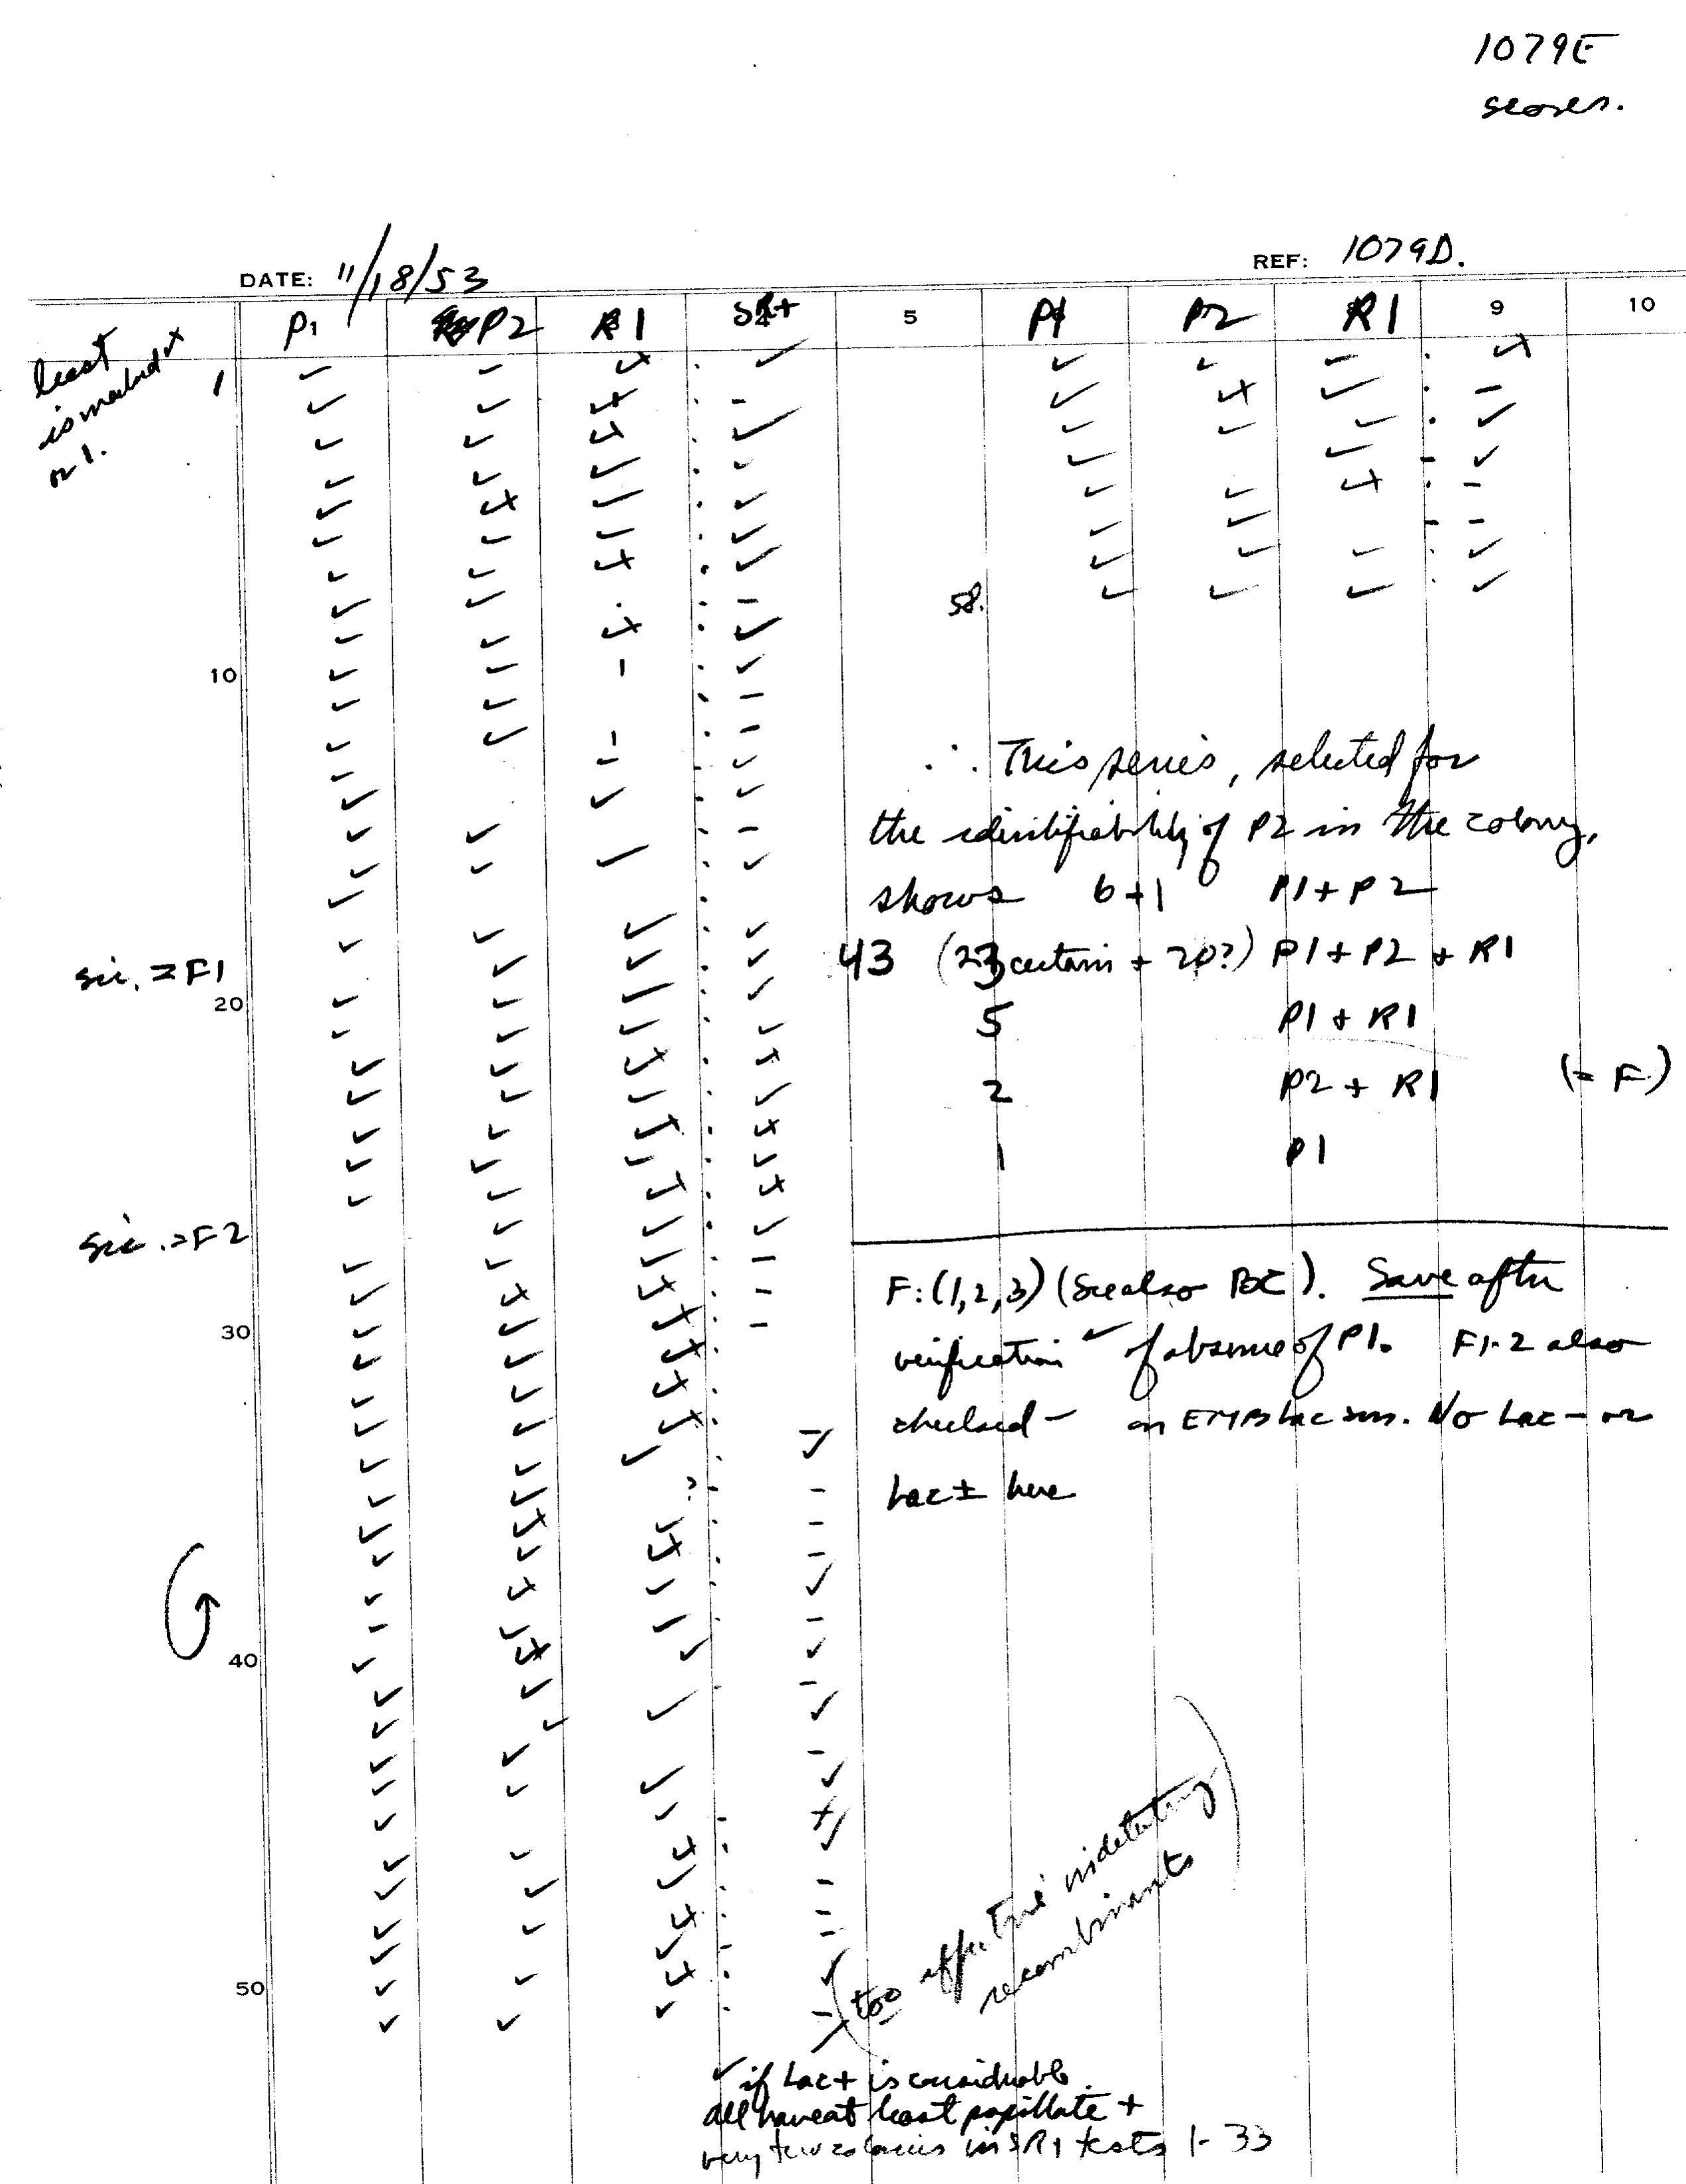 1079E
scores.
DATE: 11/18/53
REF: 1079D.
P1 P2 R1 SR+ 5 P1 P2 R1 9 10
least
is marked +
or 1.
1
58.
10
∴ This series, selected for
the identifiability of P2 in the colony,
shows 6+1 P1+P2
sic. = F1
43 (23 certain + 20?) P1+P2+R1
20
5 P1+R1
2 P2+R1 (= F)
1 P1
sic. = F2
F: (1,2,3) (See also). Save after
30
verification ✓ of absence of P1. F1-2 also
checked – on EMB Lac sm. No Lac– or
Lac± here
?
40
50
(too effective in detecting
recombinants)
✓ if Lac+ is considerable.
all have at least papillate +
very few colonies in SR+ tests 1-33